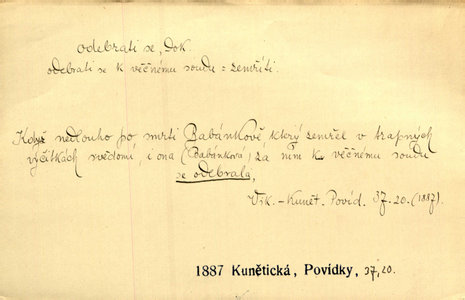 odebrati se, dok.
odebrati se k věčnému soudu = zemříti.
Když nedlouho po smrti Babánkově, který zemřel v trapných
výčitkách svědomí, i ona (Babánková) za ním k věčnému soudu
se odebrala,
Vik. - Kunět. Povíd. 37.20. (1887).
1887 Kunětická, Povídky, 37,20.